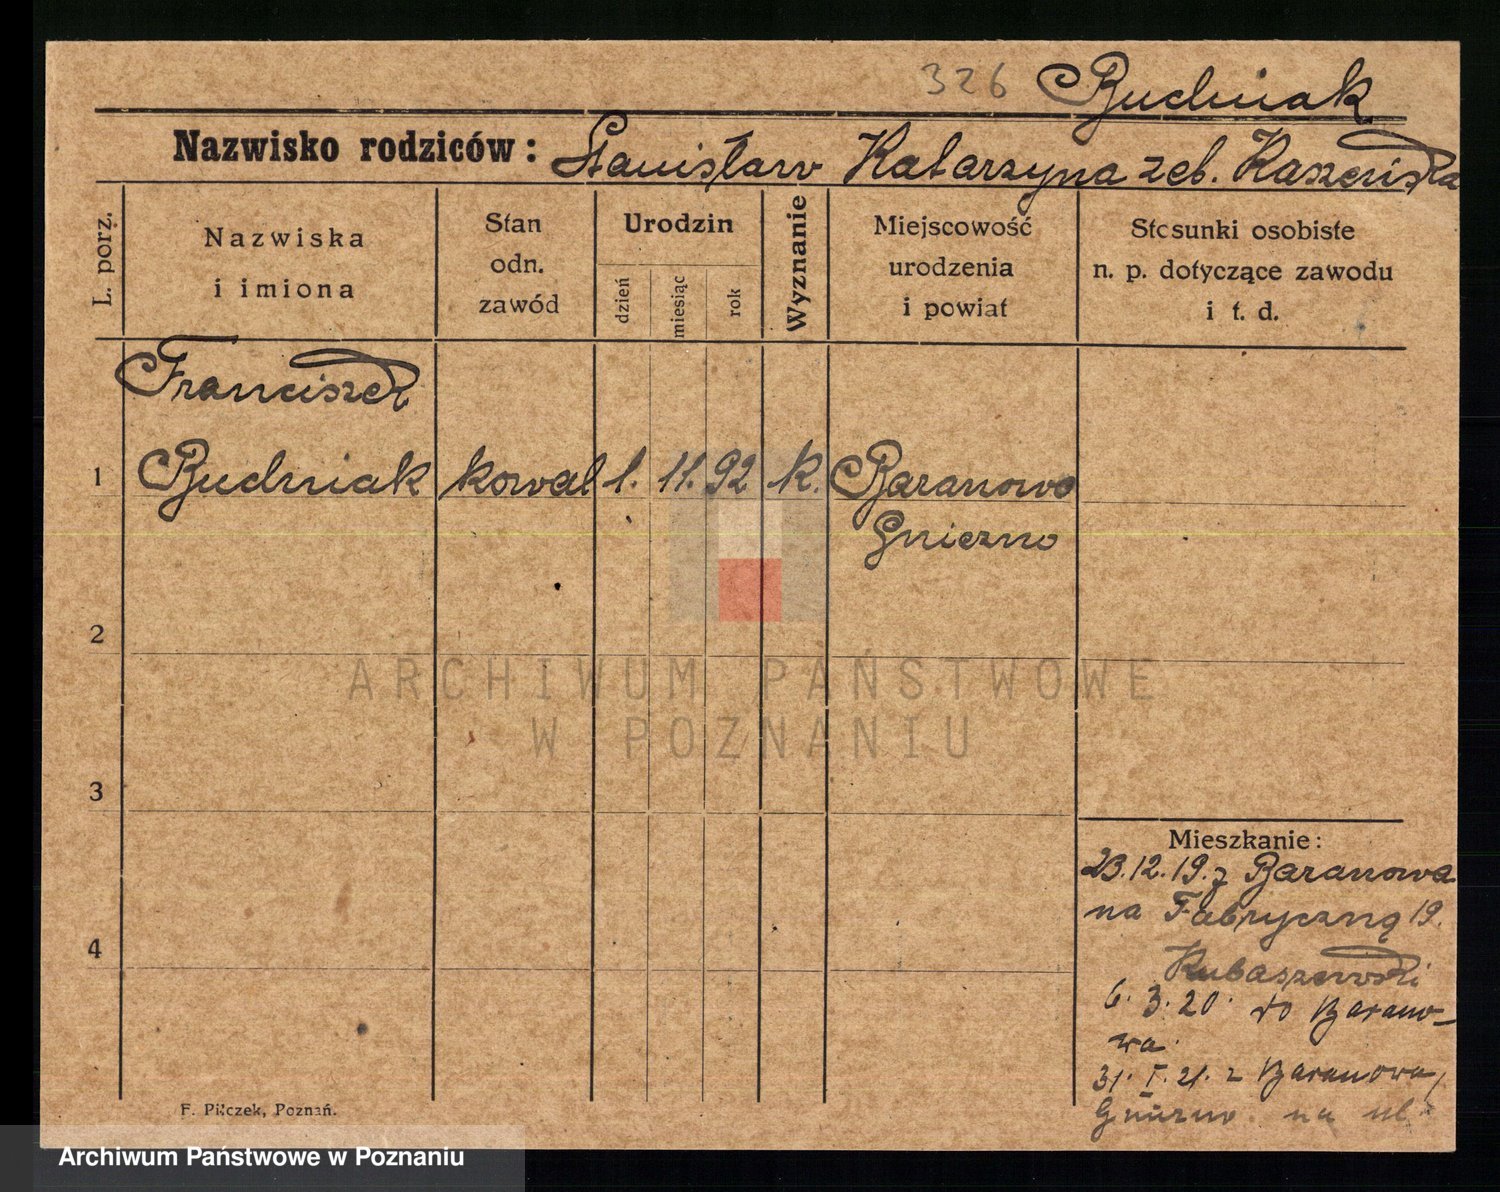 326 Budniak
Nazwisko rodziców: Stanisław Katarzyna zeb.
L. porz.
Nazwiska
i imiona
Stan
odn.
zawód
Urodzin
dzień
miesiąc
rok
Wyznanie
Miejscowość
urodzenia
i powiat
Stosunki osobiste
n. p. dotyczące zawodu
i t. d.
Franciszek
1 Budniak kowal 1. 11. 92 k. Baranowo
Gniezno
2
ARCHIWUM PAŃSTWOWE
W POZNANIU
3
Mieszkanie:
23.12.19. z Baranowa
na Fabryczną 19.
4
Kubaszewski
6. 3. 20. do Barano-
wa.
31. I. 21. z Baranowa,
na ul.
F. Pilczek, Poznań.
Archiwum Państwowe w Poznaniu